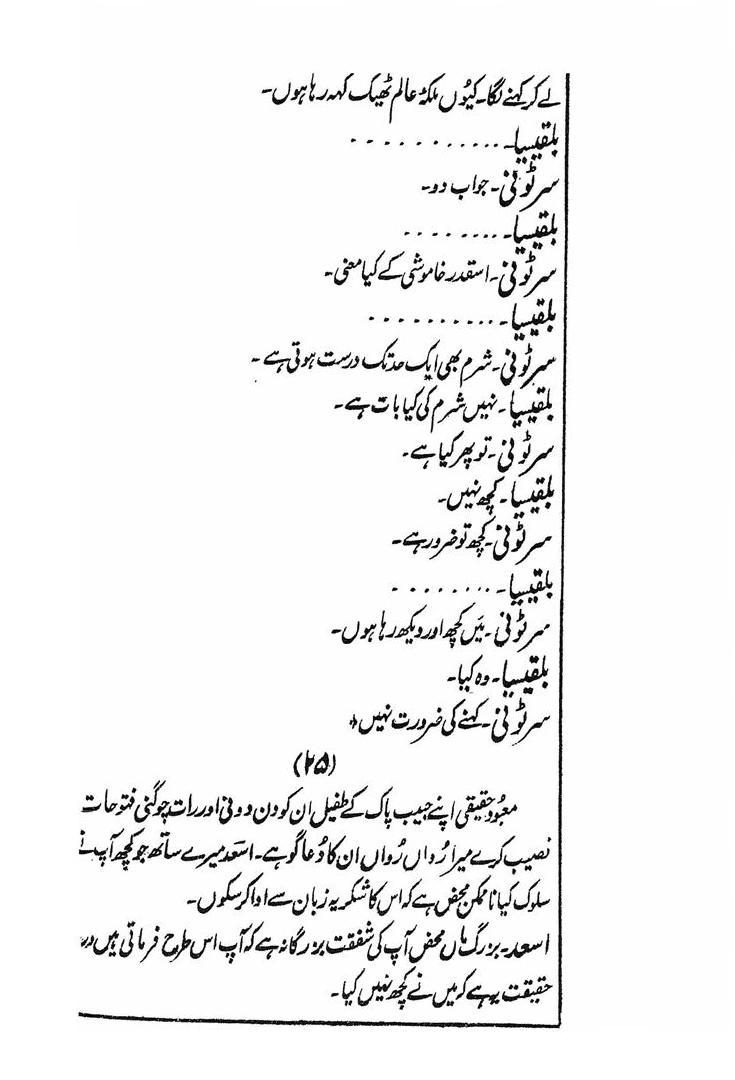 لے کر کہنے لگا۔ کیُوں ملکۂ عالم ٹھیک کہہ رہا ہوں۔
بلقیسیا۔ . . . . . . . . . . .
سرٹونی۔ جواب دو۔
بلقیسیا۔ . . . . . . . .
سرٹونی۔ اسقدر خاموشی کے کیا معنی۔
بلقیسیا۔ . . . . . . . . . .
سرٹونی۔ شرم بھی ایک حد تک درست ہوتی ہے۔
بلقیسیا۔ نہیں شرم کی کیا بات ہے۔
سرٹونی۔ تو پھر کیا ہے۔
بلقیسیا۔ کچھ نہیں۔
سرٹونی۔ کچھ تو ضرور ہے۔
بلقیسیا۔ . . . . . . . .
سرٹونی۔ میَں کچھ اور دیکھ رہا ہوں۔
بلقیسیا۔ وہ کیا۔
سرٹونی۔ کہنے کی ضرورت نہیں ٭
(۲۵)
معبُود حقیقی اپنے حبیب پاک کے طفیل ان کو دن دونی اور رات چوگنی فتوحات
نصیب کرے میرا رُواں رُواں ان کا دُعا گو ہے۔ اسعد میرے ساتھ جو کچھ آپ نے
سلوک کیا نا ممکن محض ہے کہ اس کا شکریہ زبان سے ادا کر سکوں۔
اسعد۔ بزرگ ماں محض آپ کی شفقت بزرگانہ ہے کہ آپ اس طرح فرماتی ہیں
حقیقت یہ ہے کہ میں نے کچھ نہیں کیا۔